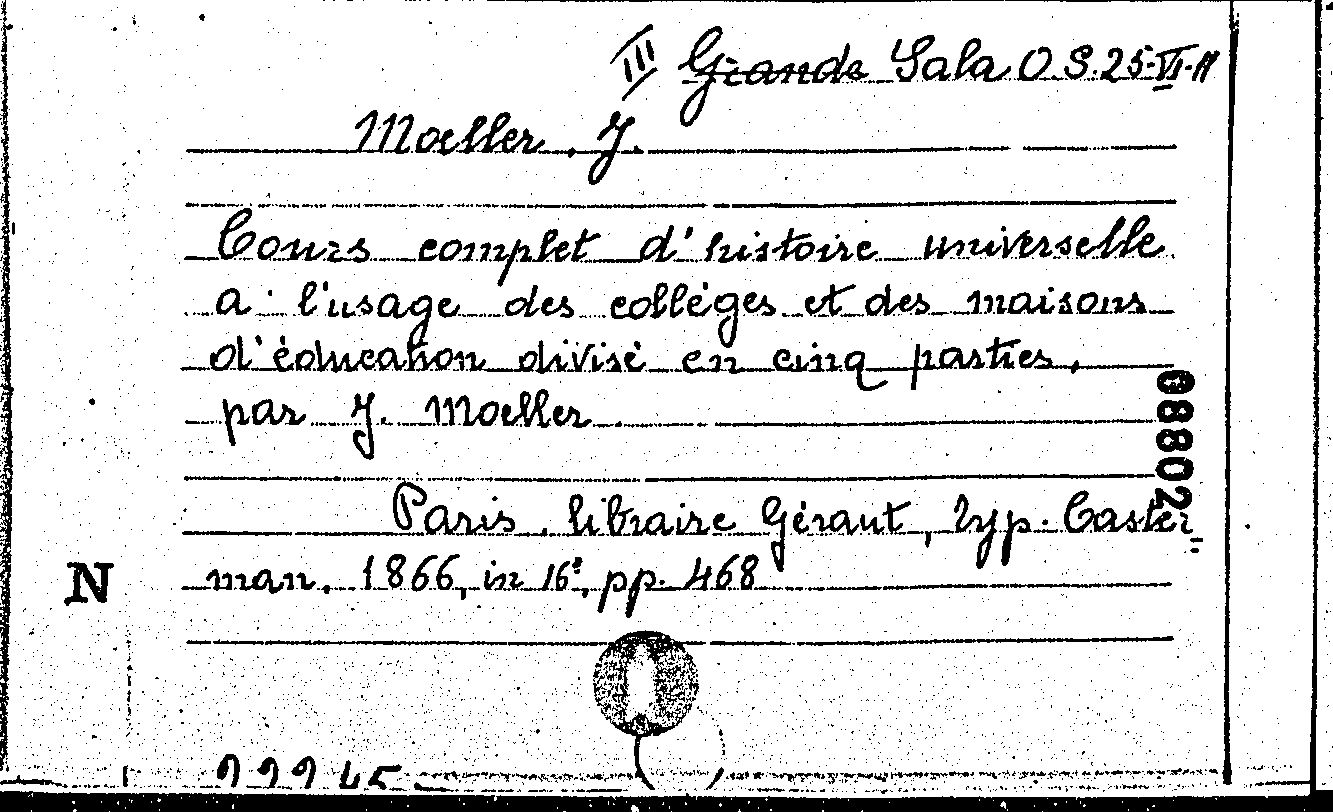 III Grande Sala O.S.25-VI-11
Moeller. J.
Cours complet d'histoire universelle
a l'usage des collèges et des maisons
d'éducation divisé en cinq parties,
par J. Moeller
08802
Paris. libraire Géraut, typ. Caster-
man. 1866, in 16º, pp. 468
N